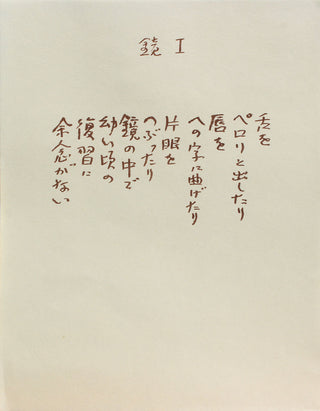 鏡 I
舌を
ペロリと出したり
唇を
への字に曲げたり
片眼を
つぶったり
鏡の中で
幼い頃の
復習に
余念がない